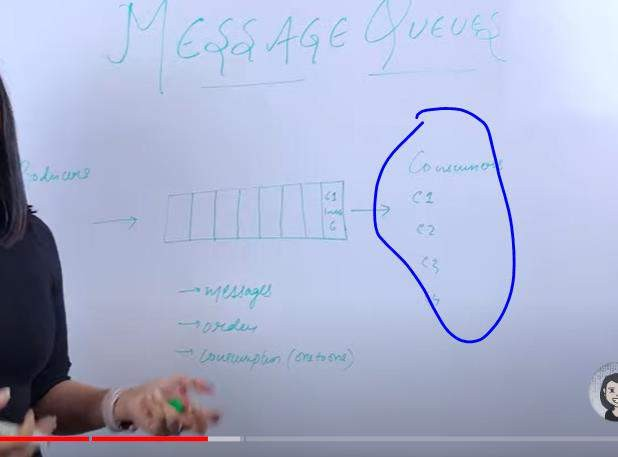 MESSAGE QUEUES
oducers
Consumers
C1
C2
C3
C1
6
→ messages
→ order
→ consumption (one to one)